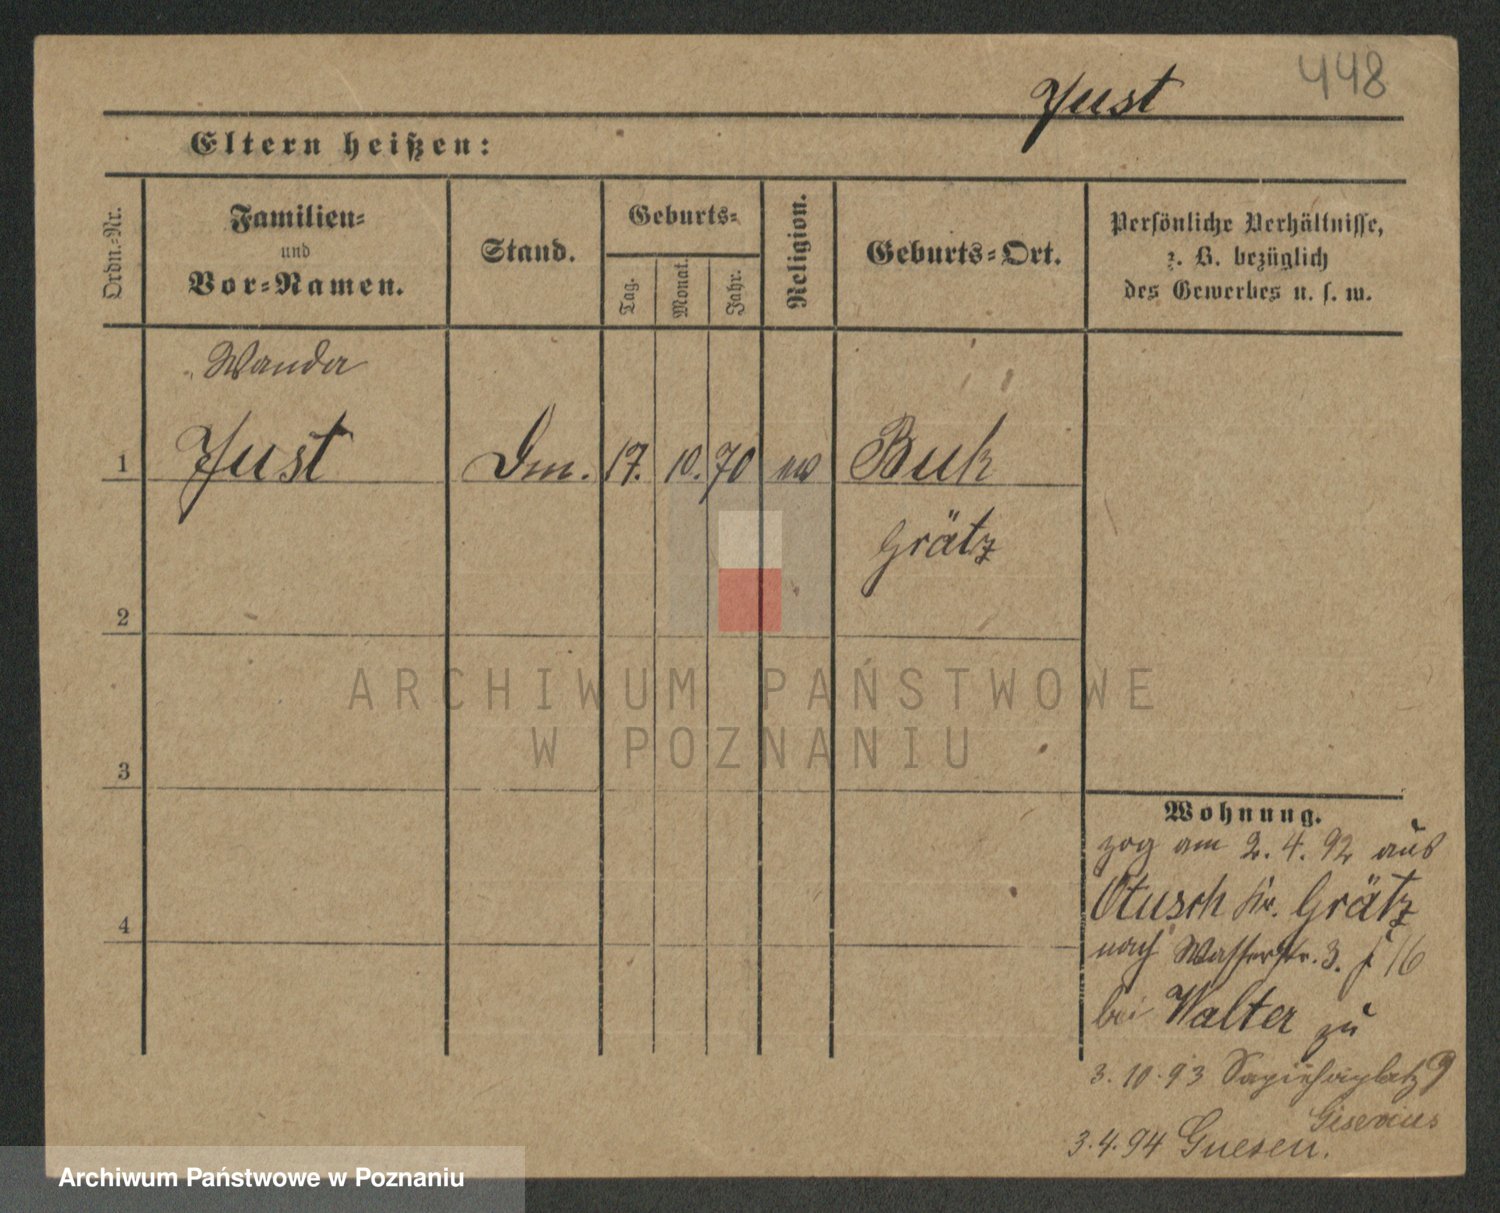 448
Just
Eltern heißen:
Ordn.-Nr.
Familien-
und
Vor-Namen.
Stand.
Geburts-
Tag.
Monat.
Jahr.
Religion.
Geburts-Ort.
Persönliche Verhältnisse,
z. B. bezüglich
des Gewerbes u. s. w.
Wanda
1 Just 17. 10. 70 Buk
Grätz
2
3
4
ARCHIWUM PAŃSTWOWE
W POZNANIU
Wohnung.
zog am 2. 4. 92 aus
Otusch Kr. Grätz
nach Wasserstr. 3.
bei Walter zu
3. 10. 93 Sapiehaplatz 9
Gisevius
3.4.94 Gnesen.
Archiwum Państwowe w Poznaniu